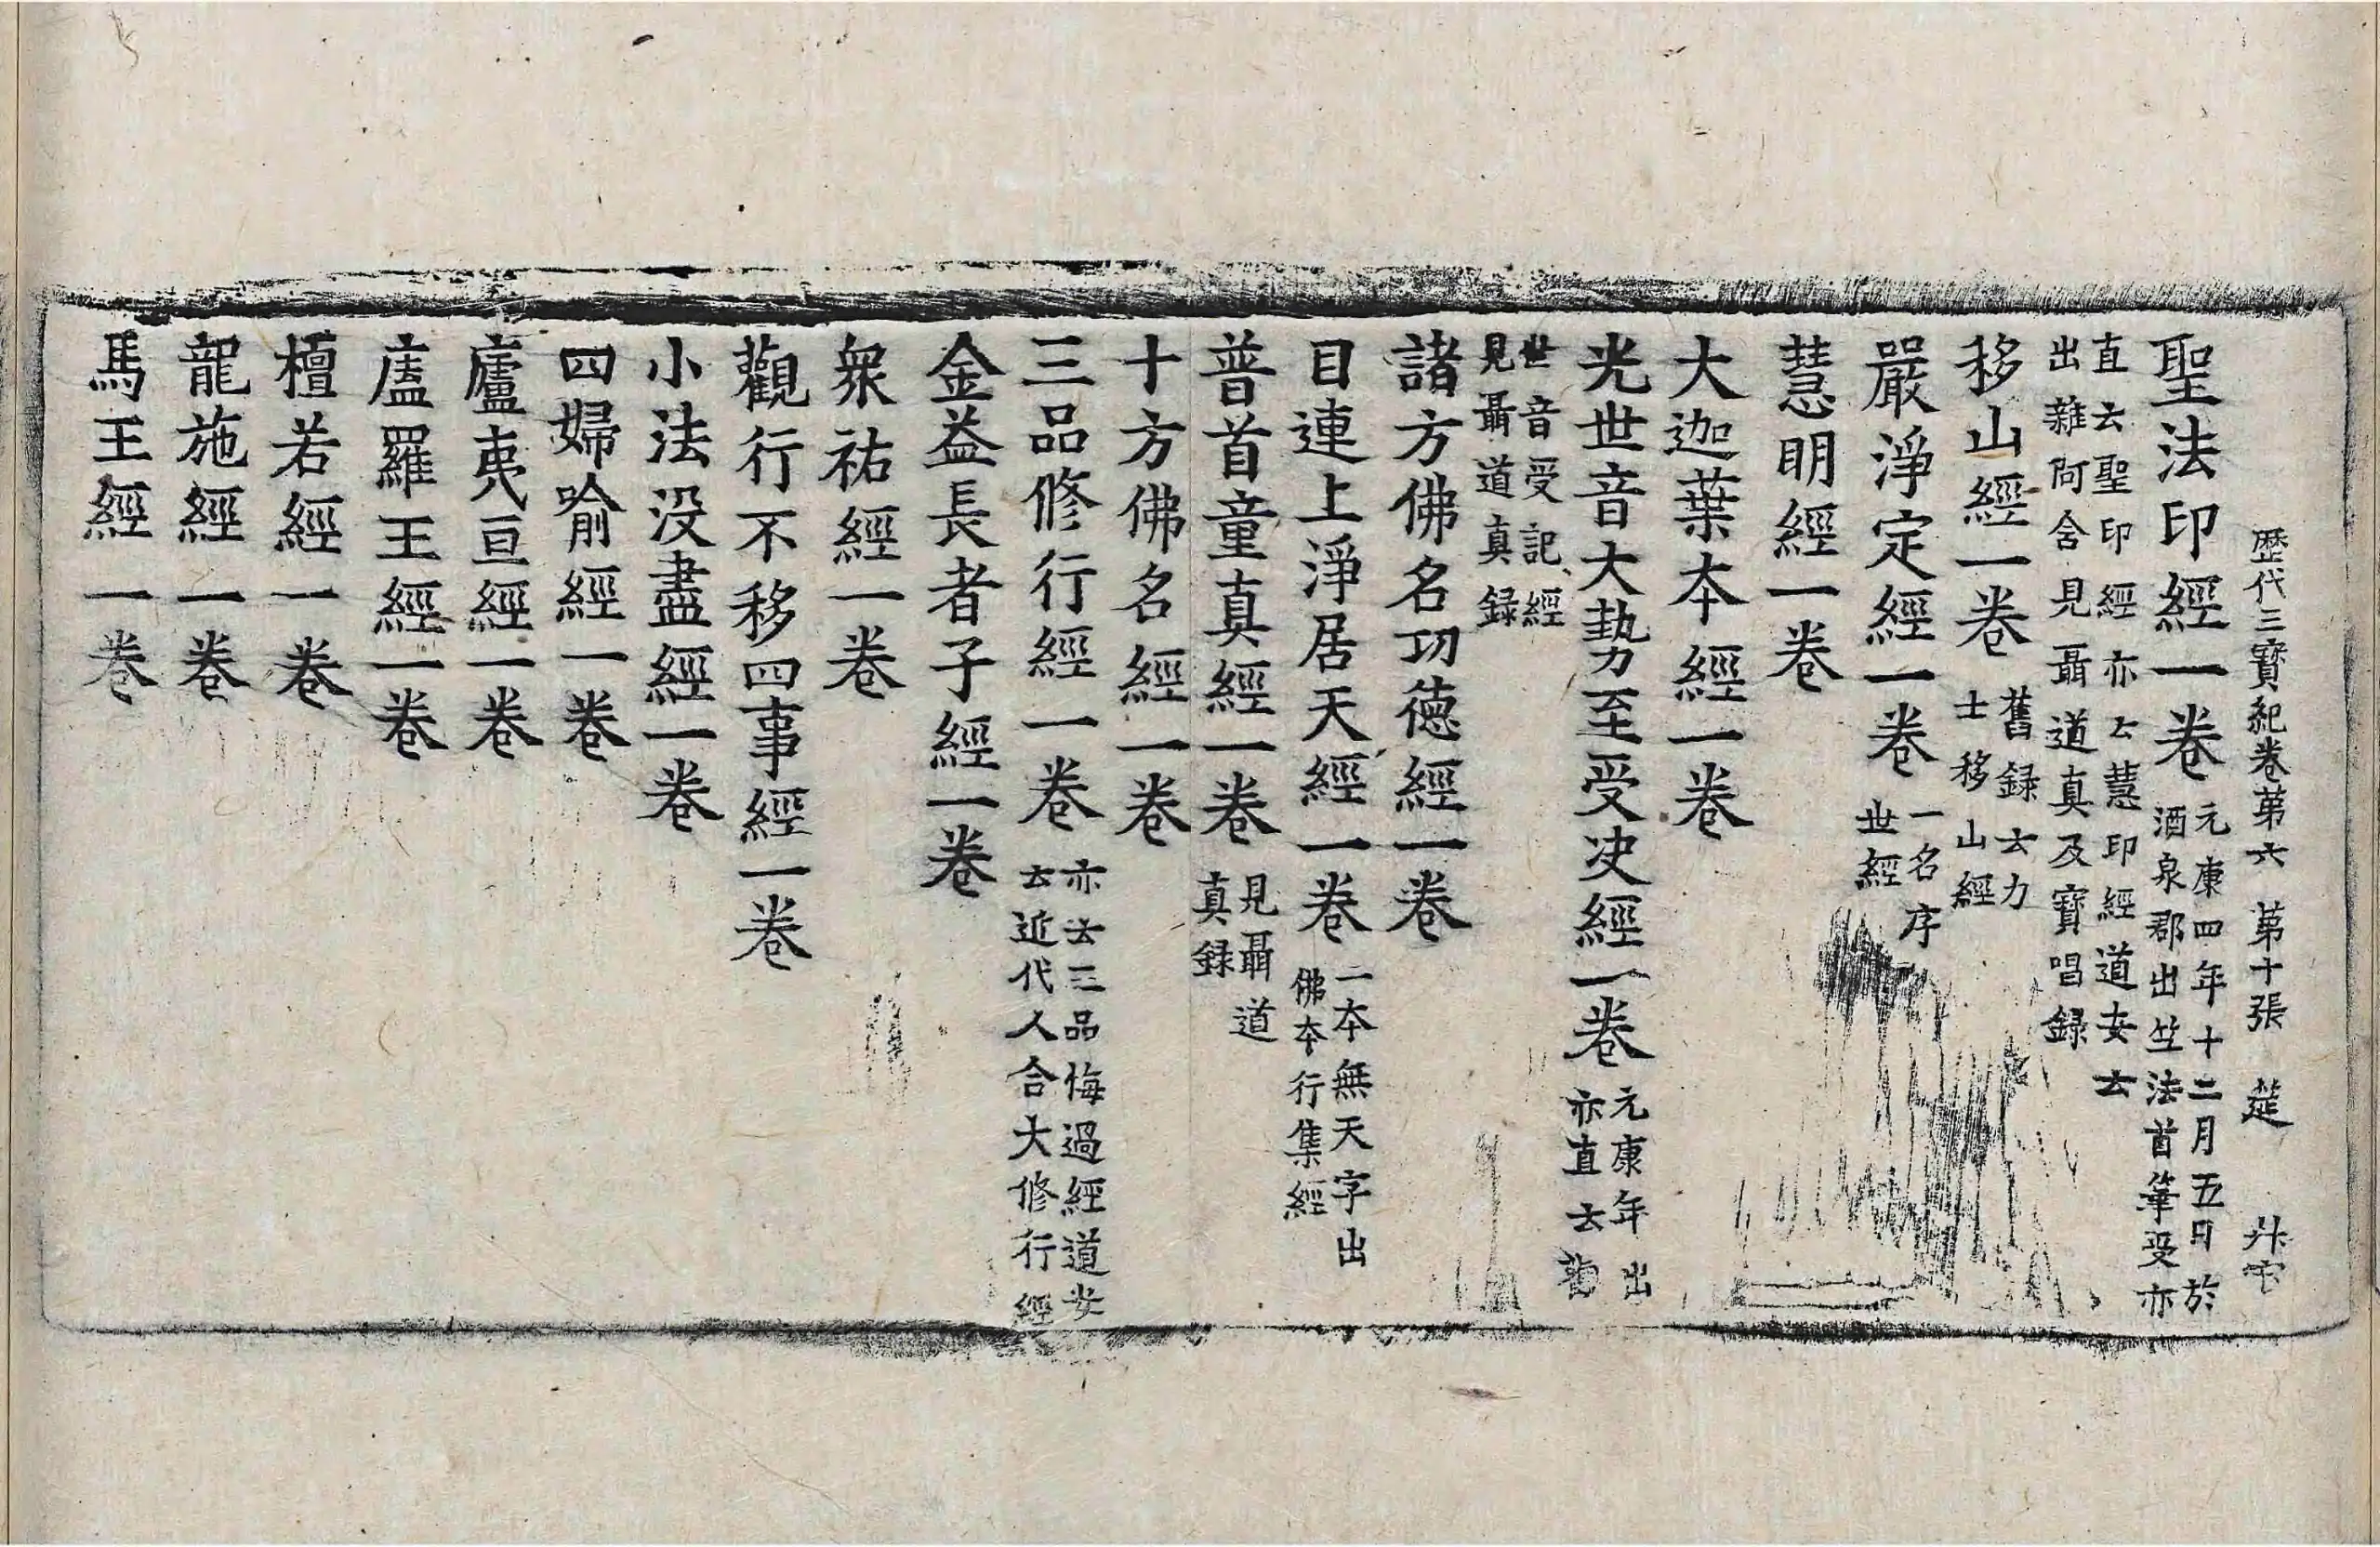 歷代三寶紀卷第六 第十張 莚
聖法印經一卷 元康四年十二月五日於
酒泉郡出竺法首筆受亦
直云聖印經亦云慧印經道安云
出雜阿含見聶道真及寶唱録
移山經一卷 舊録云力
士移山經
嚴淨定經一卷 一名序
世經
慧明經一卷
大迦葉本經一卷
光世音大勢至受決經一卷 元康年出
亦直云觀
世音受記經
見聶道真録
諸方佛名功德經一卷
目連上淨居天經一卷 一本無天字出
佛本行集經
普首童真經一卷 見聶道
真録
十方佛名經一卷
三品修行經一卷 亦云三品悔過經道安
云近代人合大修行經
金益長者子經一卷
衆祐經一卷
觀行不移四事經一卷
小法没盡經一卷
四婦喻經一卷
廬夷亘經一卷
廬羅王經一卷
檀若經一卷
龍施經一卷
馬王經一卷